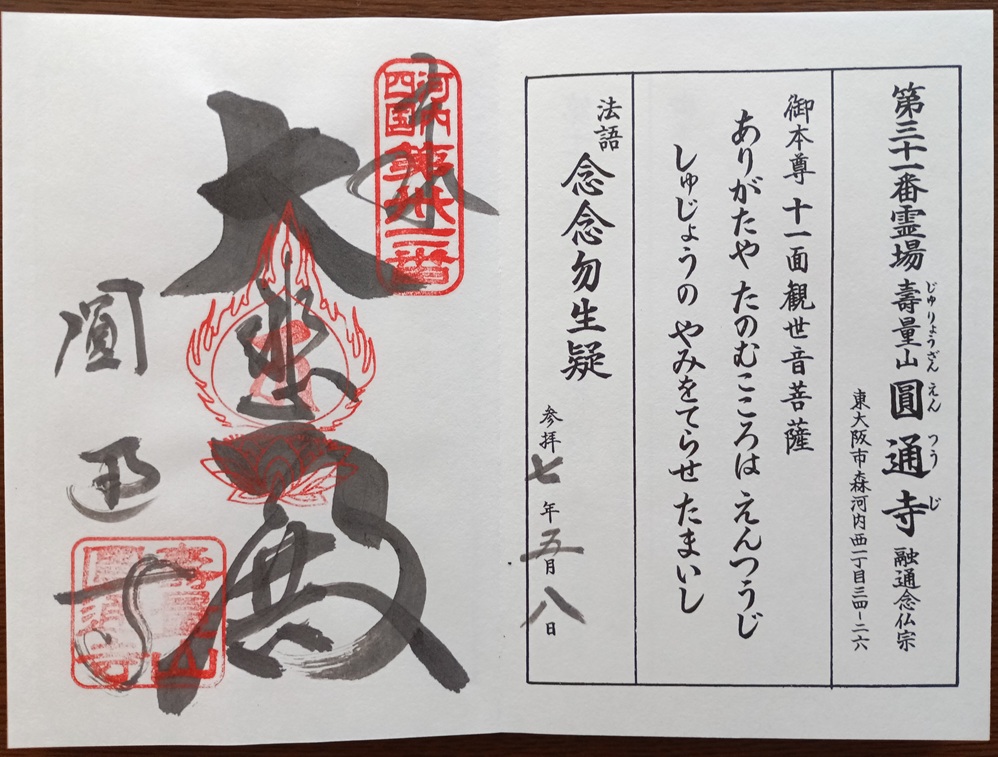 第三十一番霊場 壽量山 圓通寺 融通念仏宗
じゅりょうざん えん つう じ
東大阪市森河内西一丁目三四−二六
御本尊 十一面観世音菩薩
ありがたや たのむこころは えんつうじ
しゅじょうの やみをてらせ たまいし
法語 念念勿生疑
参拝 七年 五月 八日
奉拝
河内四国 第卅一番
大悲殿
圓通寺